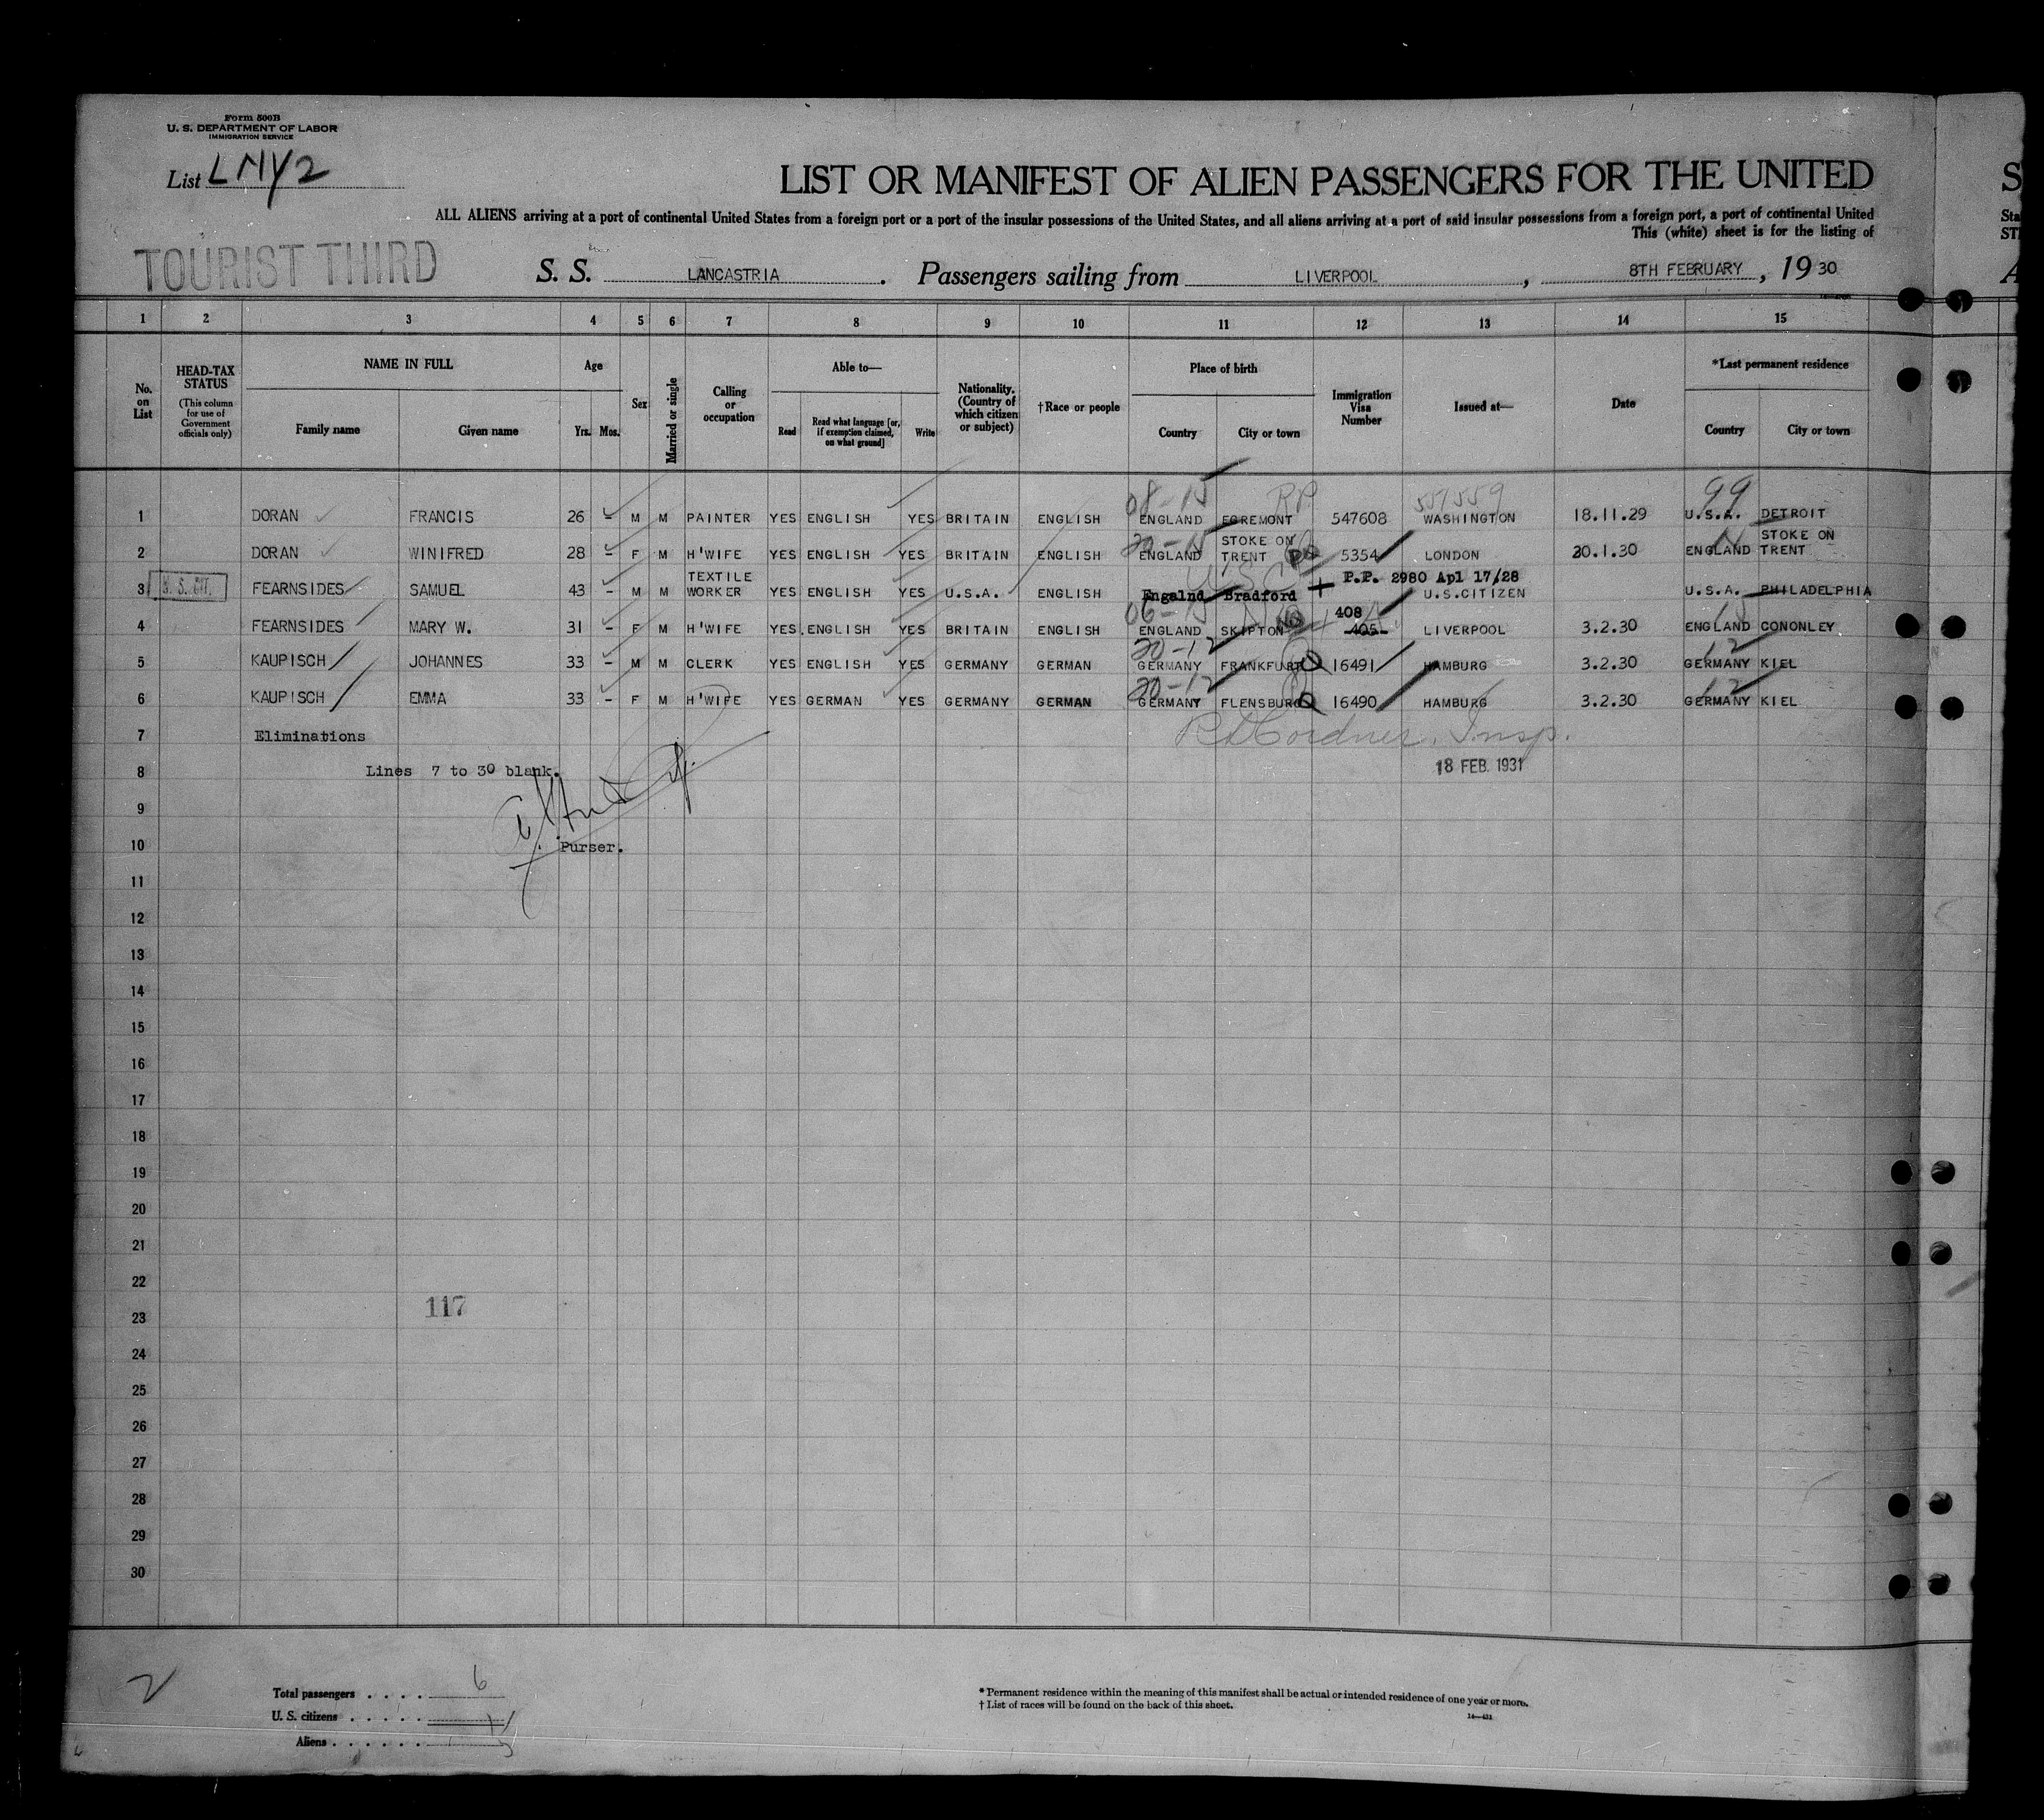 Form 500B
U. S. DEPARTMENT OF LABOR
IMMIGRATION SERVICE
List LNY2
LIST OR MANIFEST OF ALIEN PASSENGERS FOR THE UNITED
S
ALL ALIENS arriving at a port of continental United States from a foreign port or a port of the insular possessions of the United States, and all aliens arriving at a port of said insular possessions from a foreign port, a port of continental United
Sta
This (white) sheet is for the listing of
ST
TOURIST THIRD
S. S. LANCASTRIA. Passengers sailing from LIVERPOOL, 8TH FEBRUARY, 1930
A
1 2 3 4 5 6 7 8 9 10 11 12 13 14 15
No. on List
HEAD-TAX STATUS (This column for use of Government officials only)
NAME IN FULL
Family name Given name
Age
Yrs. Mos.
Sex
Married or single
Calling or occupation
Able to—
Read Read what language [or, if exemption claimed, on what ground] Write
Nationality. (Country of which citizen or subject)
†Race or people
Place of birth
Country City or town
Immigration Visa Number
Issued at—
Date
*Last permanent residence
Country City or town
08-15 RP 551559 99
1 DORAN FRANCIS 26 - M M PAINTER YES ENGLISH YES BRITAIN ENGLISH ENGLAND EGREMONT 547608 WASHINGTON 18.11.29 U.S.A. DETROIT
20-15
2 DORAN WINIFRED 28 - F M H'WIFE YES ENGLISH YES BRITAIN ENGLISH ENGLAND STOKE ON TRENT 5354 LONDON 20.1.30 ENGLAND STOKE ON TRENT
U.S.C. P.P. 2980 Apl 17/28
3 U. S. CIT. FEARNSIDES SAMUEL 43 - M M TEXTILE WORKER YES ENGLISH YES U.S.A. ENGLISH Engalnd Bradford + U.S.CITIZEN U.S.A. PHILADELPHIA
06-15 408
4 FEARNSIDES MARY W. 31 - F M H'WIFE YES. ENGLISH YES BRITAIN ENGLISH ENGLAND SKIPTON 405 LIVERPOOL 3.2.30 ENGLAND CONONLEY
20-12 12
5 KAUPISCH JOHANNES 33 - M M CLERK YES ENGLISH YES GERMANY GERMAN GERMANY FRANKFURT 16491 HAMBURG 3.2.30 GERMANY KIEL
20-12 12
6 KAUPISCH EMMA 33 - F M H'WIFE YES GERMAN YES GERMANY GERMAN GERMANY FLENSBURG 16490 HAMBURG 3.2.30 GERMANY KIEL
7 Eliminations Cordner. Insp.
8 Lines 7 to 30 blank. 18 FEB. 1931
9
10 Purser.
11
12
13
14
15
16
17
18
19
20
21
22
23 117
24
25
26
27
28
29
30
2
Total passengers . . . . 6
U. S. citizens . . . . . 1
Aliens . . . . . . 5
* Permanent residence within the meaning of this manifest shall be actual or intended residence of one year or more.
† List of races will be found on the back of this sheet.
14—431